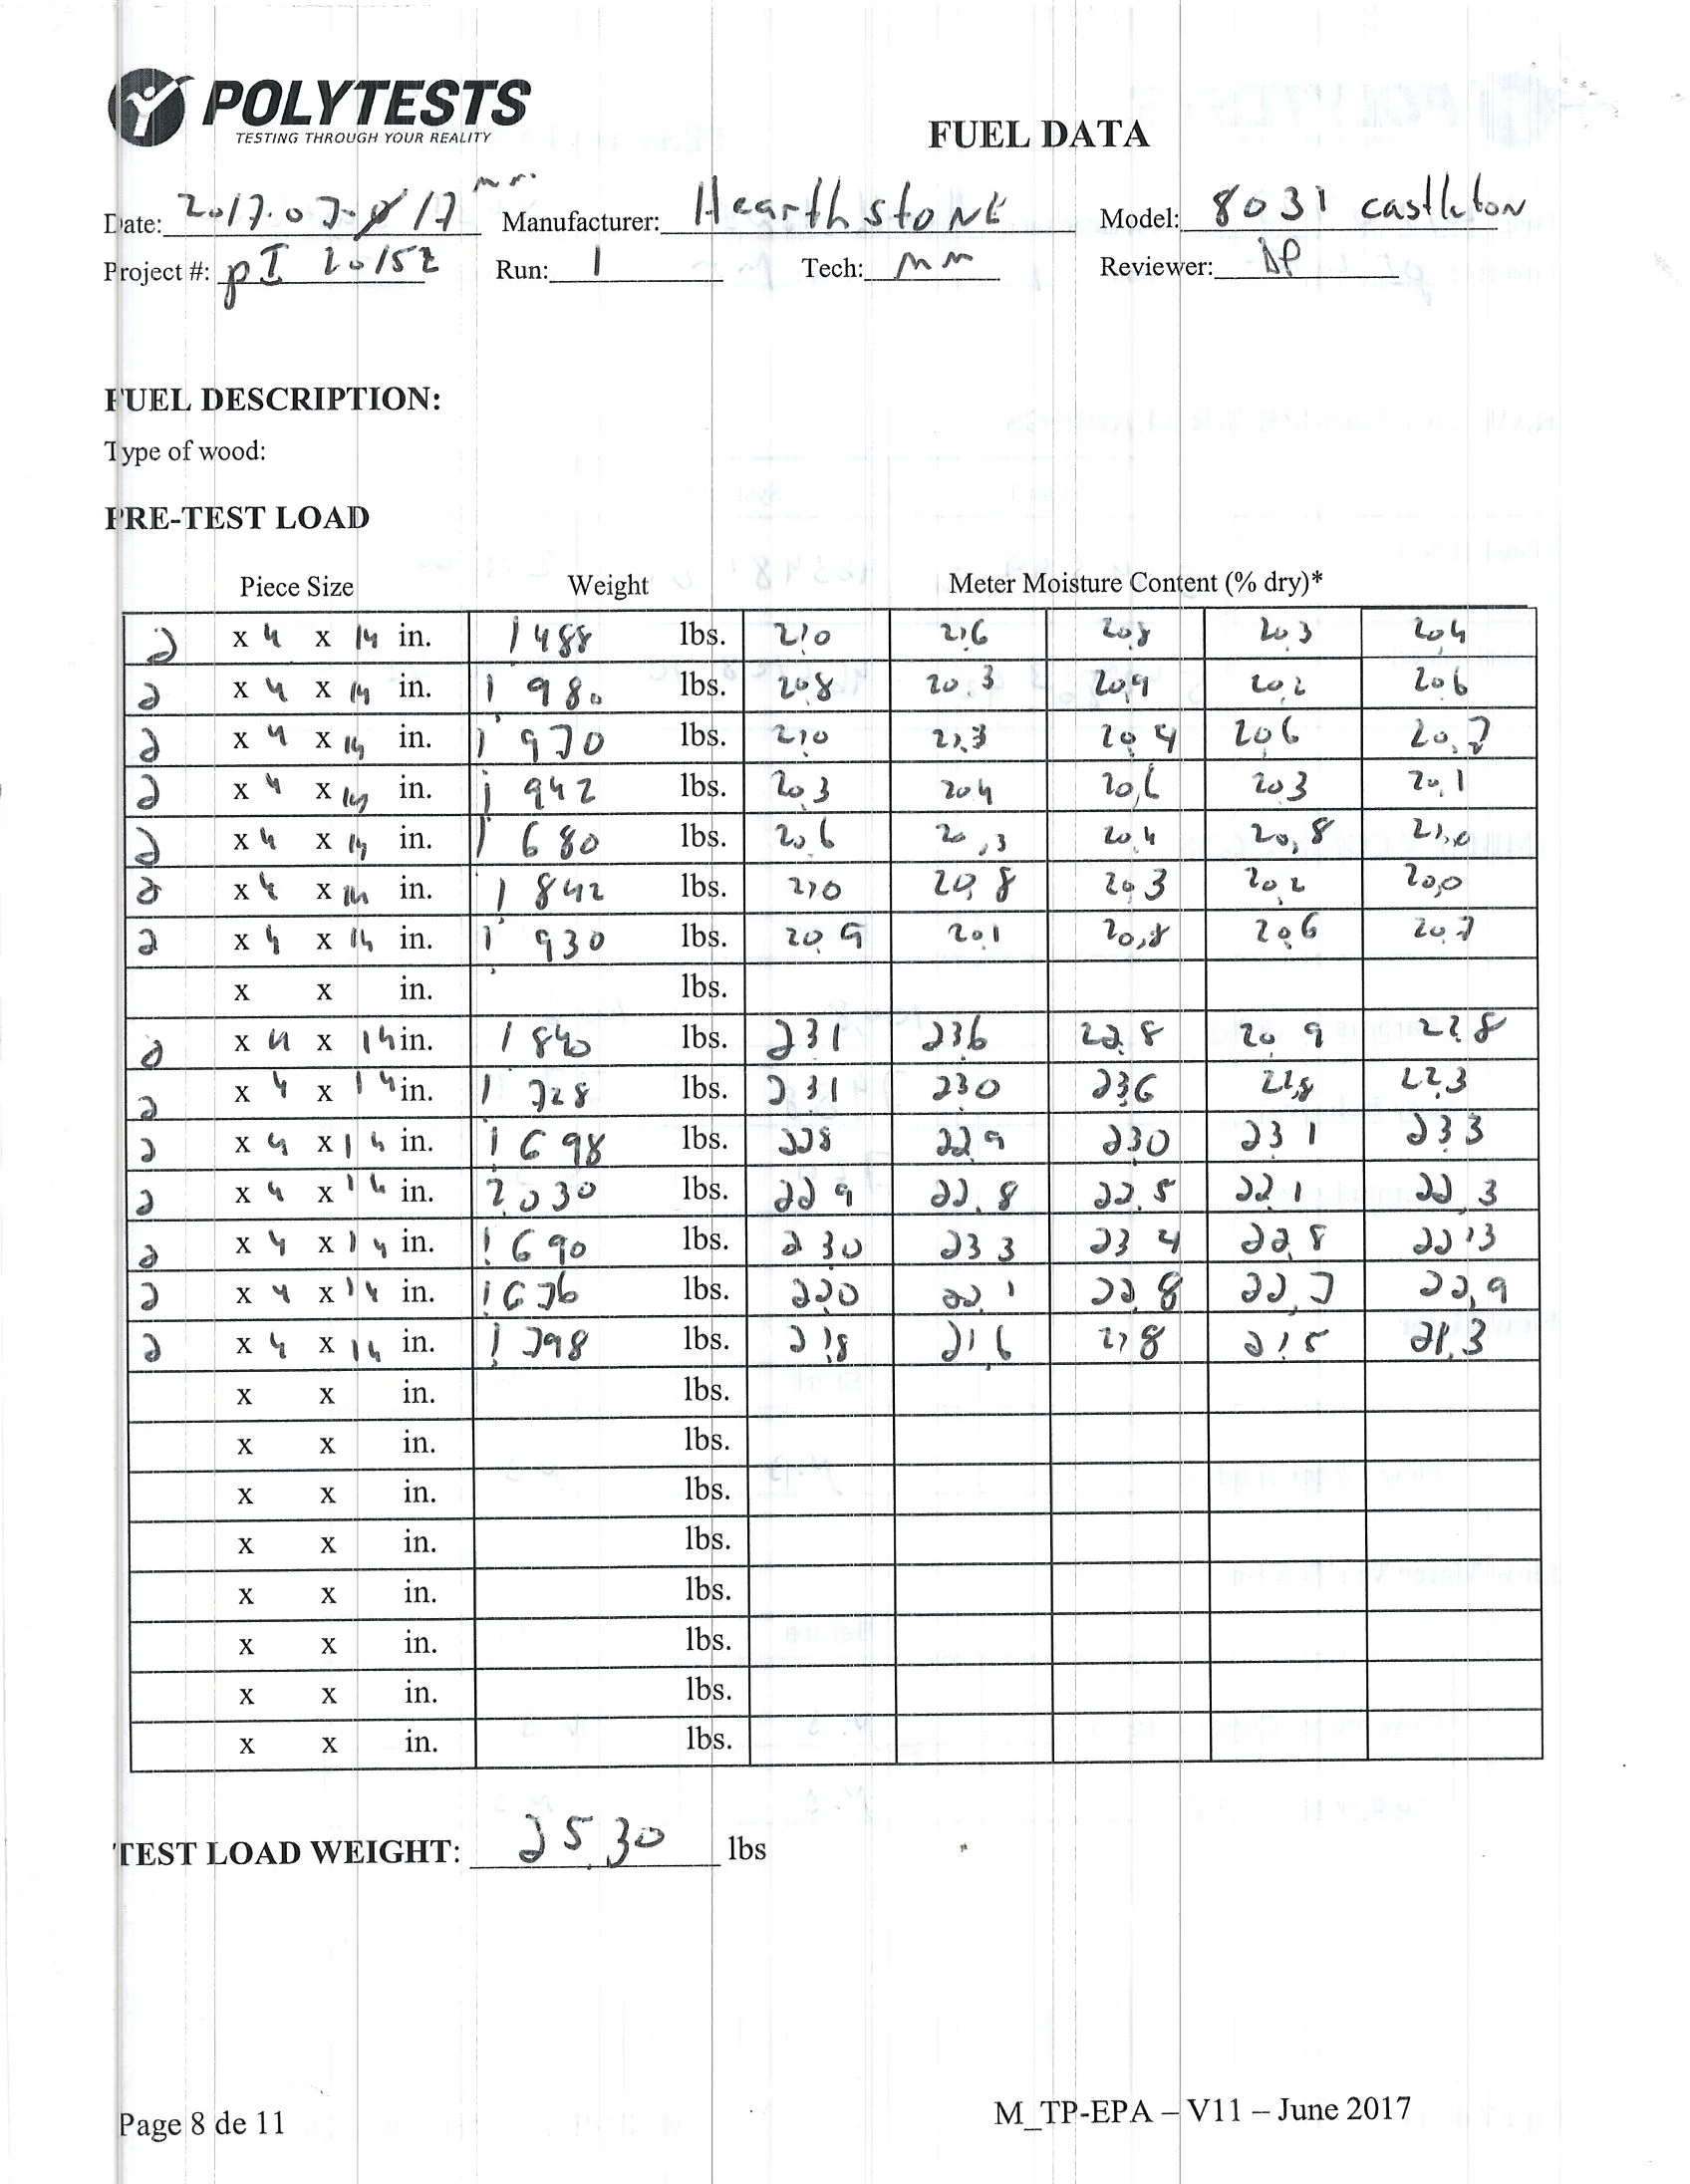 POLYTESTS
TESTING THROUGH YOUR REALITY
FUEL DATA
Date: 2017.07-17 mm Manufacturer: HearthstoNE Model: 8031 castleton
Project #: pI 20152 Run: 1 Tech: mm Reviewer: DP
FUEL DESCRIPTION:
Type of wood:
PRE-TEST LOAD
Piece Size Weight Meter Moisture Content (% dry)*
2 x 4 x 14 in. 1 488 lbs. 21,0 21,6 20,8 20,3 20,4
2 x 4 x 14 in. 1,980 lbs. 20,8 20,3 20,9 20,2 20,6
2 x 4 x 14 in. 1,970 lbs. 21,0 21,3 20,4 20,6 20,7
2 x 4 x 14 in. 1,942 lbs. 20,3 20,4 20,6 20,3 20,1
2 x 4 x 14 in. 1,680 lbs. 20,6 20,3 20,4 20,8 21,0
2 x 4 x 14 in. 1,842 lbs. 21,0 20,8 20,3 20,2 20,0
2 x 4 x 14 in. 1,930 lbs. 20,9 20,1 20,8 20,6 20,7
x x in. lbs.
2 x 4 x 14 in. 1 840 lbs. 23,1 23,6 22,8 20,9 22,8
2 x 4 x 14 in. 1 728 lbs. 23,1 23,0 23,6 22,8 22,3
2 x 4 x 14 in. 1,698 lbs. 22,8 22,9 23,0 23,1 23,3
2 x 4 x 14 in. 2,030 lbs. 22,9 22,8 22,5 22,1 22,3
2 x 4 x 14 in. 1,690 lbs. 23,0 23,3 23,4 22,8 22,3
2 x 4 x 14 in. 1,676 lbs. 22,0 22,1 22,8 22,7 22,9
2 x 4 x 14 in. 1,798 lbs. 21,8 21,6 21,8 21,5 21,3
x x in. lbs.
x x in. lbs.
x x in. lbs.
x x in. lbs.
x x in. lbs.
x x in. lbs.
x x in. lbs.
x x in. lbs.
TEST LOAD WEIGHT: 25.30 lbs
Page 8 de 11
M_TP-EPA – V11 – June 2017